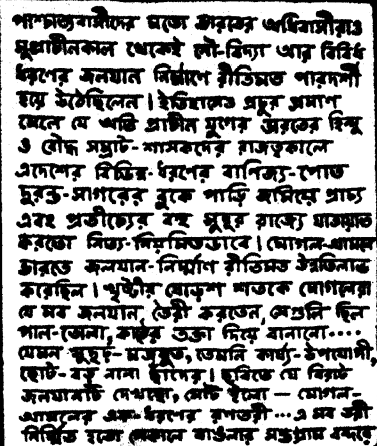 পাশ্চাত্যবাসীদের মতো ভারতের অধিবাসীরাও
সুপ্রাচীনকাল থেকেই নৌ-বিদ্যা আর বিবিধ
ধরণের জলযান নির্ম্মাণে রীতিমত পারদর্শী
হয়ে উঠেছিলেন। ইতিহাসেও প্রচুর প্রমাণ
মেলে যে অতি প্রাচীন যুগের ভারতের হিন্দু
ও বৌদ্ধ সম্রাট-শাসকদের রাজত্বকালে
এদেশের বিচিত্র-ধরণের বাণিজ্য-পোত
দুরন্ত-সাগরের বুকে পাড়ি জমিয়ে প্রাচ্য
এবং প্রতীচ্যের বহু সুদূর রাজ্যে যাতায়াত
করতো নিত্য-নিয়মিতভাবে। মোগল-আমলে
ভারতে জলযান-নির্ম্মাণ রীতিমত উন্নতিলাভ
করেছিল। খৃষ্টীয় ষোড়শ শতকে মোগলেরা
যে সব জলযান, তৈরী করতেন, সেগুলি ছিল
পাল-তোলা, কাঠের তক্তা দিয়ে বানানো....
যেমন সুদৃঢ়-মজবুত, তেমনি কার্য্য-উপযোগী,
ছোট-বড় নানা ছাঁদের। ছবিতে যে বিরাট
জলযানটি দেখছো, সেটি হলো — মোগল-
আমলের এক-ধরণের রণতরী...এ সব তরী
নির্ম্মিত হতো সেকালে বাঙলার সপ্তগ্রাম বন্দরে